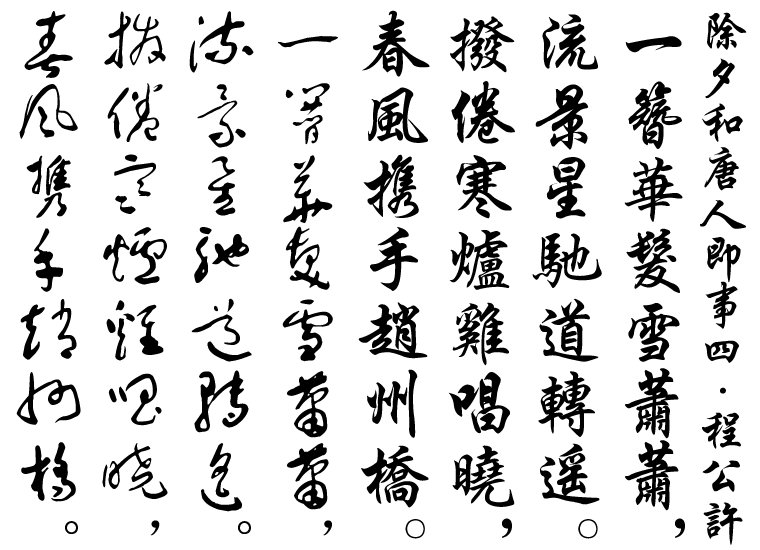 除夕和唐人即事四·程公許
一簪華髮雪蕭蕭，
流景星馳道轉遥。
撥倦寒爐雞唱曉，
春風攜手趙州橋。
一簪華髮雪蕭蕭，
流景星馳道轉遥。
撥倦寒爐雞唱曉，
春風攜手趙州橋。